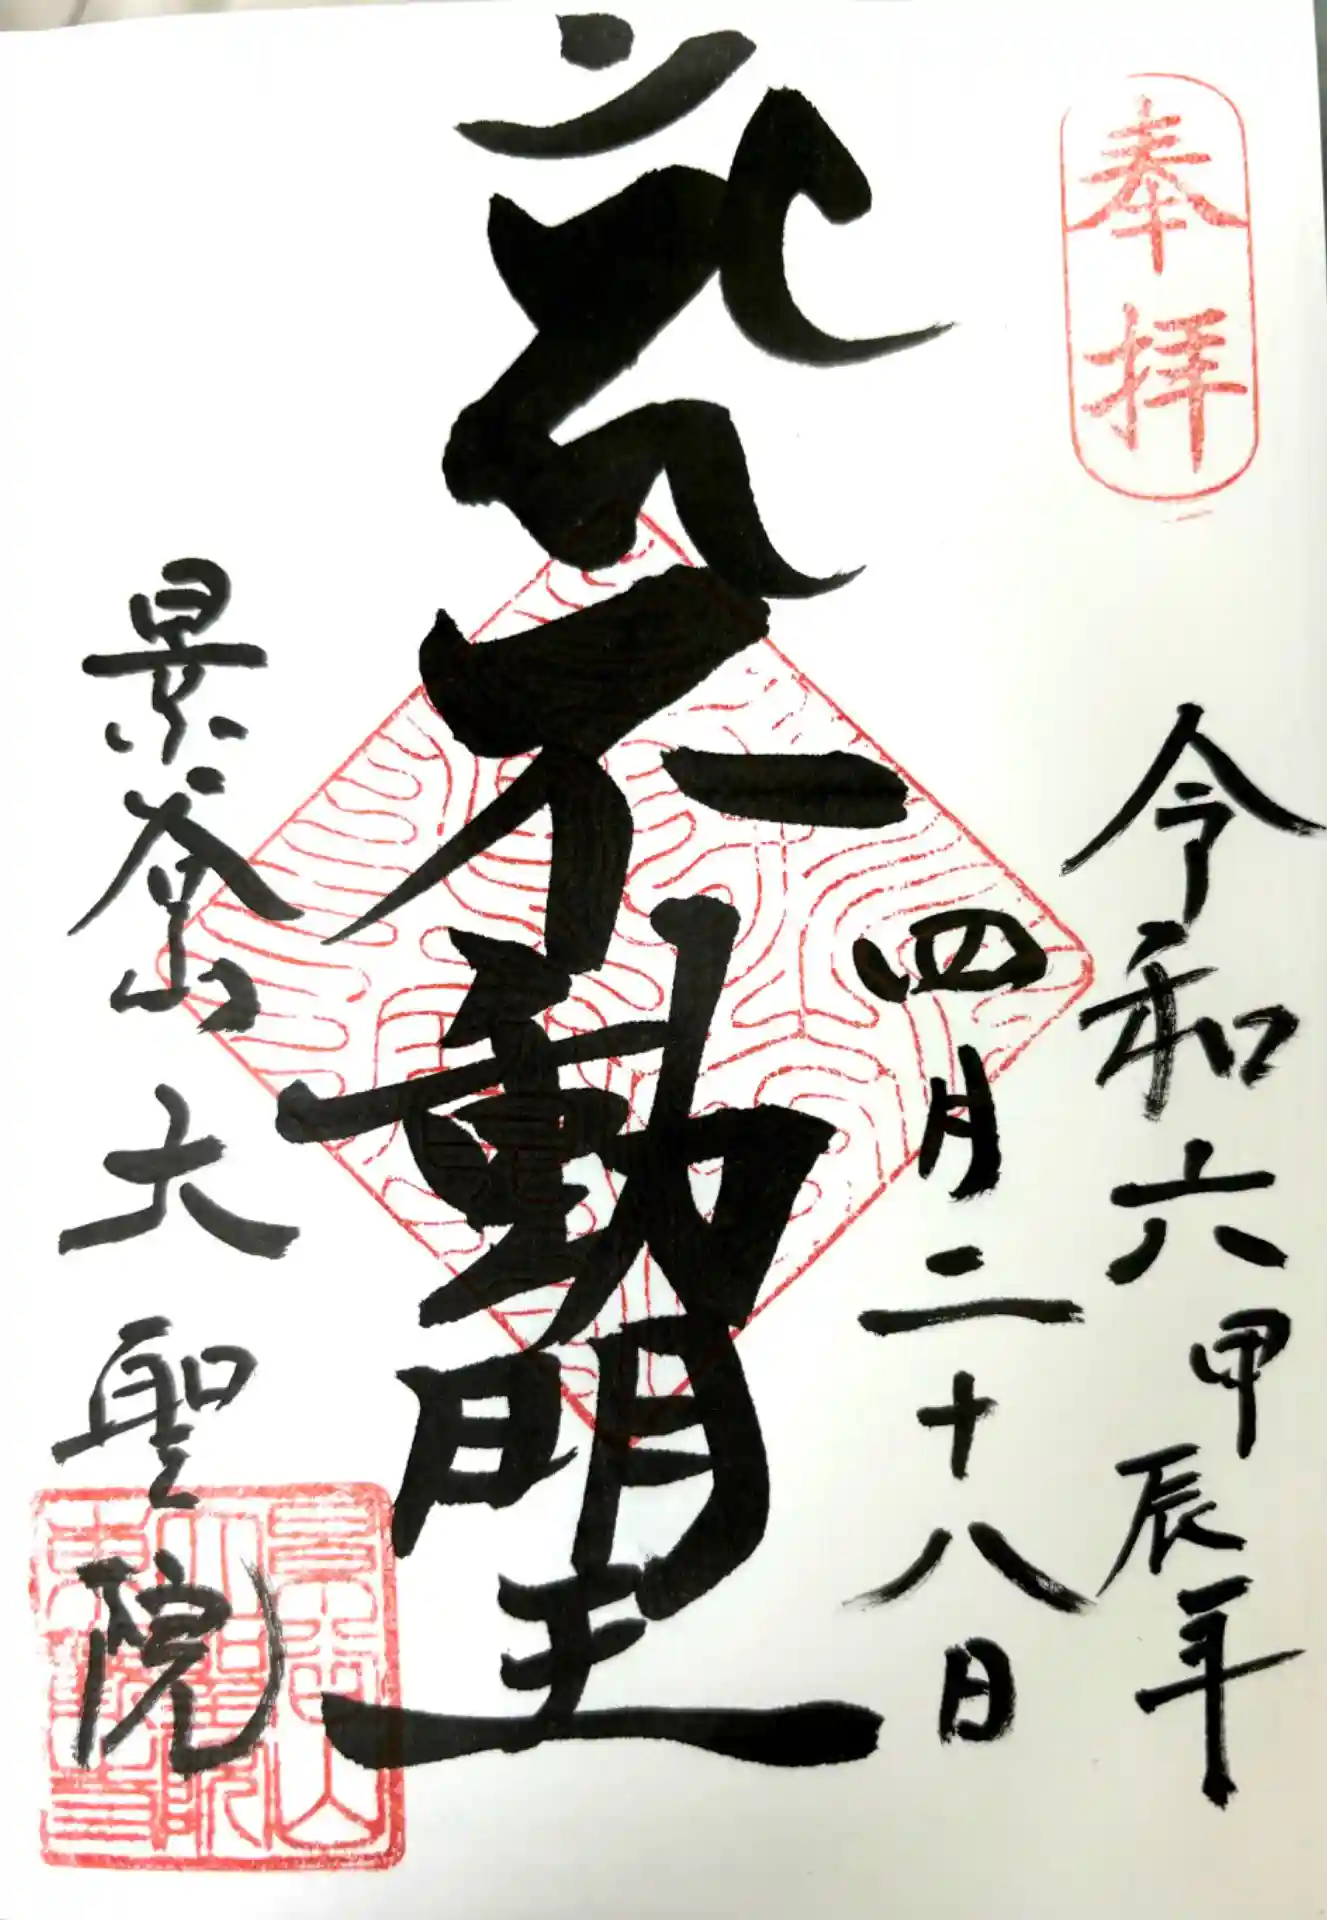 奉拝
令和六甲辰年
四月二十八日
不動明王
景 山 大聖院